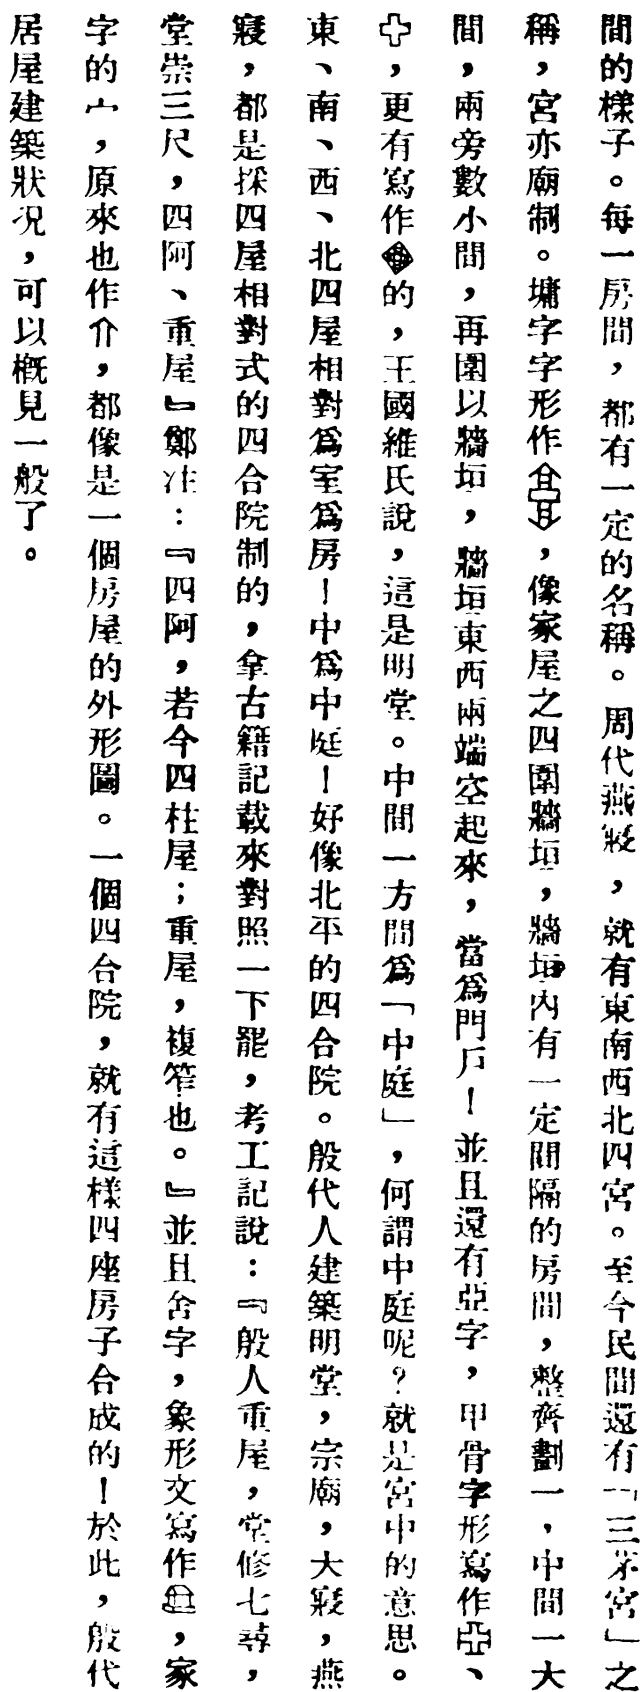 間的樣子。每一房間，都有一定的名稱。周代燕寢，就有東南西北四宮。至今民間還有「三茅宮」之
稱，宮亦廟制。墉字字形作，像家屋之四圍牆垣，牆垣內有一定間隔的房間，整齊劃一，中間一大
間，兩旁數小間，再圍以牆垣，牆垣東西兩端空起來，當爲門戶！並且還有亞字，甲骨字形寫作、
，更有寫作的，王國維氏說，這是明堂。中間一方間爲「中庭」，何謂中庭呢？就是宮中的意思。
東、南、西、北四屋相對爲室爲房！中爲中庭！好像北平的四合院。殷代人建築明堂，宗廟，大寢，燕
寢，都是採四屋相對式的四合院制的，拿古籍記載來對照一下罷，考工記說：『殷人重屋，堂修七尋，
堂崇三尺，四阿、重屋』鄭注：『四阿，若今四柱屋；重屋，複笮也。』並且舍字，象形文寫作，家
字的宀，原來也作介，都像是一個房屋的外形圖。一個四合院，就有這樣四座房子合成的！於此，殷代
居屋建築狀況，可以概見一般了。